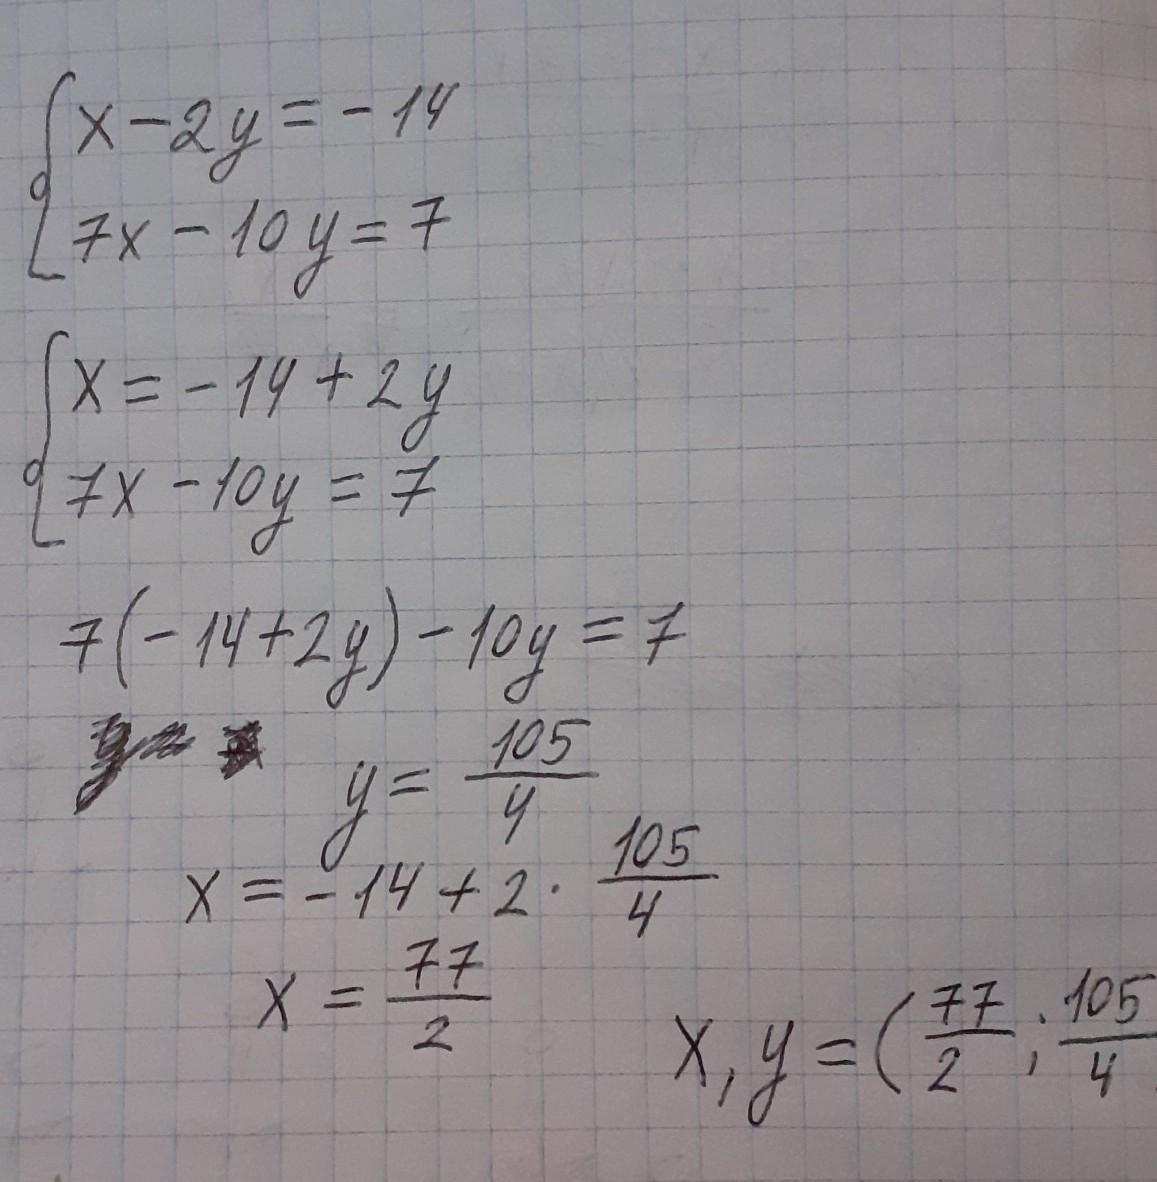 x - 2y = - 14
7x - 10y = 7
x = - 14 + 2y
7x - 10y = 7
7(- 14 + 2y) - 10y = 7
y = 105/4
x = - 14 + 2 · 105/4
x = 77/2
x, y = (77/2 ; 105/4